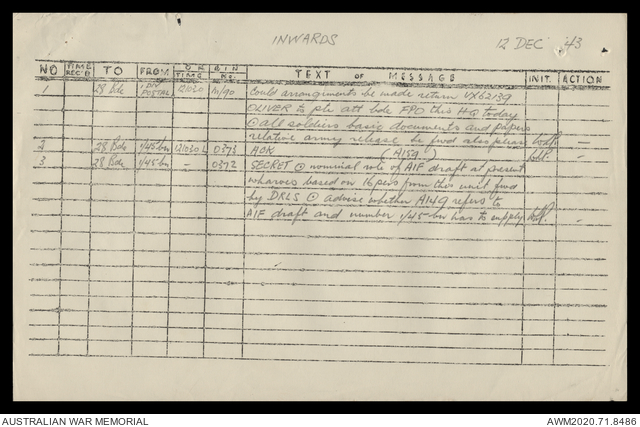 INWARDS
12 DEC 43
NO TIME REC'D TO FROM ORIGIN TIME No. TEXT OF MESSAGE INIT. ACTION
1 28 Bde 1 DIV POSTAL 121030 Could arrangements be made return VX62139
OLIVER to att bde FPO this HQ today
@ all soldiers basic documents and papers
relative army release be fwd also please
2 28 Bde 1/45 bn 121030L 0373 ACK (A159.) –
3 28 Bde 1/45 bn – 0372 SECRET @ nominal role of AIF draft at present
wharves based on 16 pers from this unit fwd
by DRLS @ advise whether A149 refers to
AIF draft and number 1/45 bn has to supply
AUSTRALIAN WAR MEMORIAL
AWM2020.71.8486